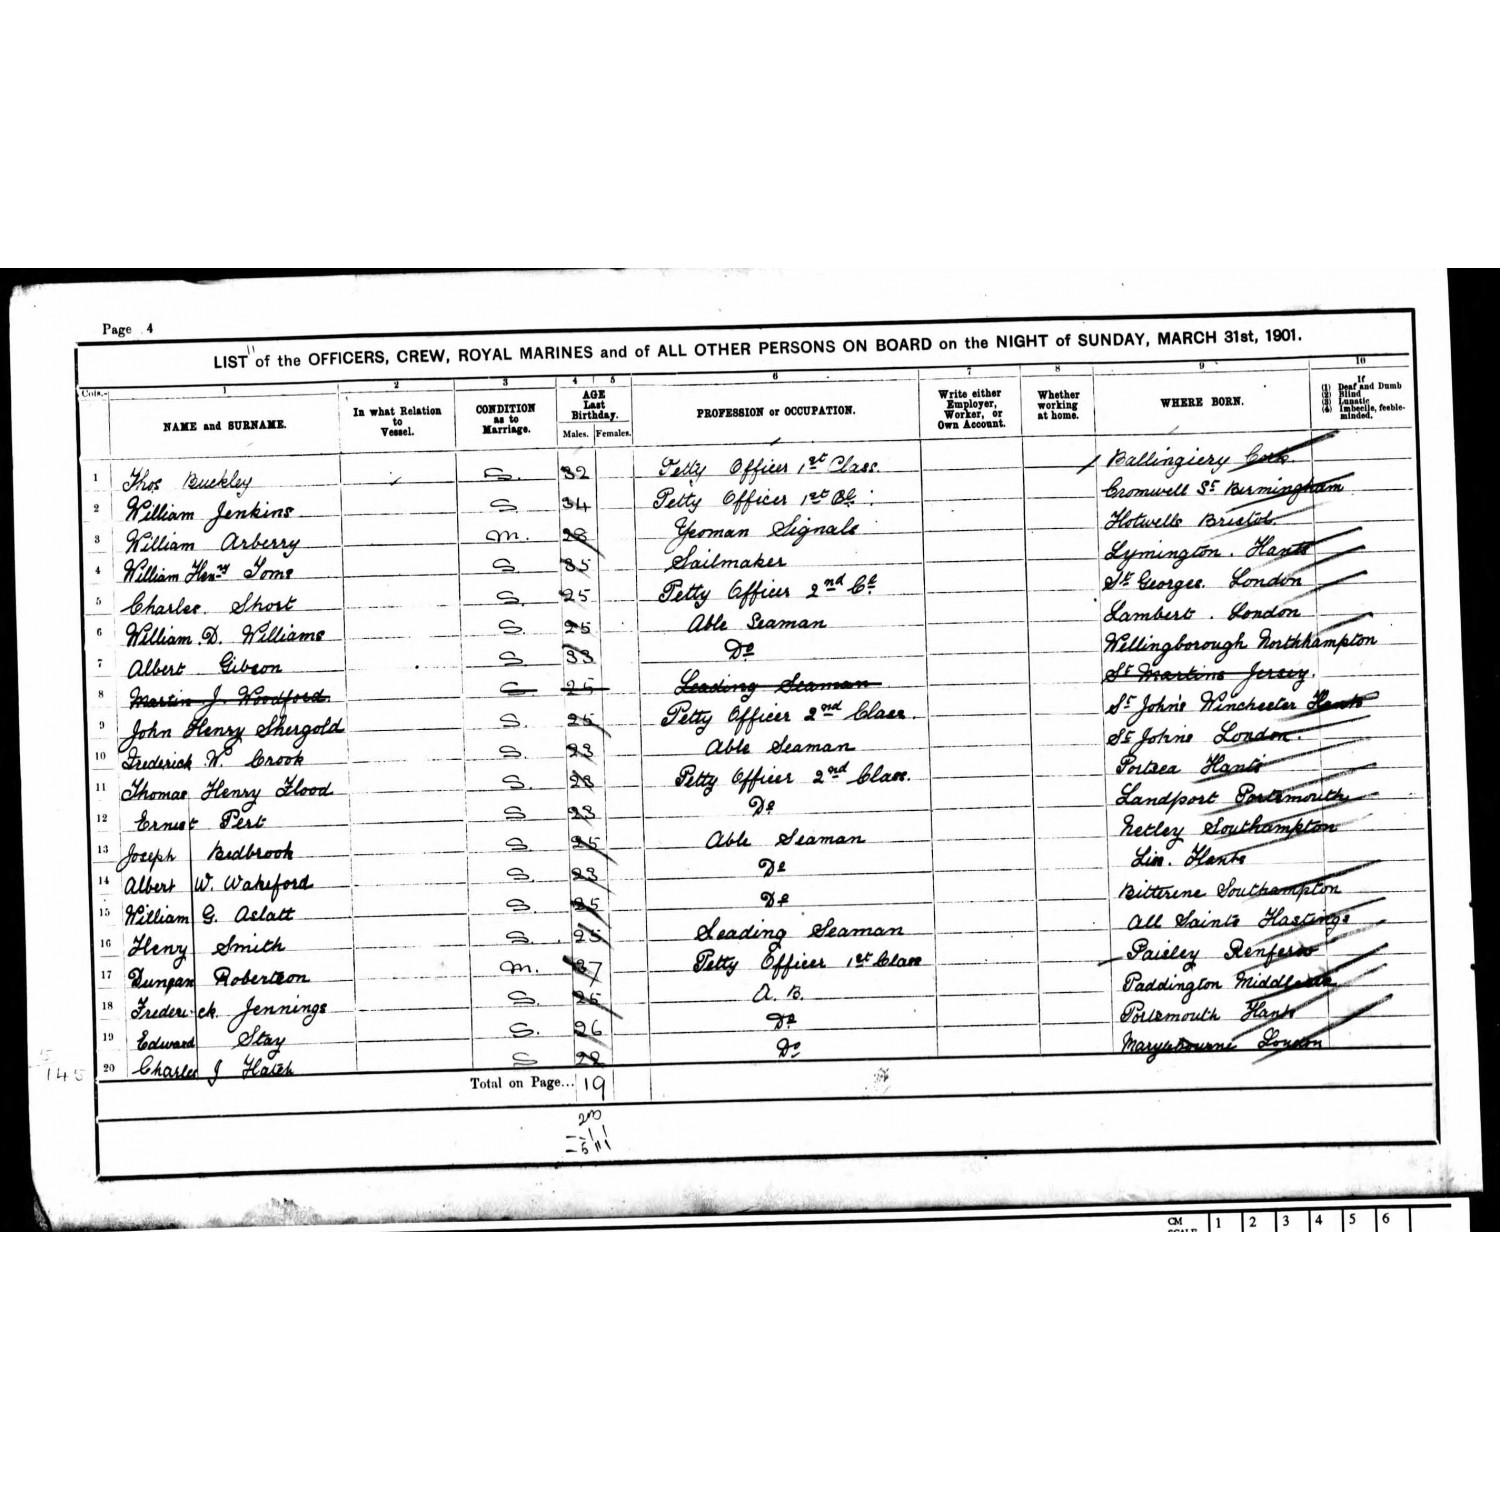 Page 4
LIST of the OFFICERS, CREW, ROYAL MARINES and of ALL OTHER PERSONS ON BOARD on the NIGHT of SUNDAY, MARCH 31st, 1901.
Cols.- 1 2 3 4 5 6 7 8 9 10
NAME and SURNAME. In what Relation to Vessel. CONDITION as to Marriage. AGE Last Birthday. Males. Females. PROFESSION or OCCUPATION. Write either Employer, Worker, or Own Account. Whether working at home. WHERE BORN. If (1) Deaf and Dumb (2) Blind (3) Lunatic (4) Imbecile, feeble-minded.
1 Thos Buckley S. 32 Petty Officer 1st Class. Ballingiery Cork.
2 William Jenkins S. 34 Petty Officer 1st Cl: Cromwell St Birmingham
3 William Arberry M. 28 Yeoman Signals Hotwells Bristol.
4 William Henry Toms S. 35 Sailmaker Lymington. Hants
5 Charles Short S. 25 Petty Officer 2nd Cl St Georges. London
6 William D. Williams S. 25 Able Seaman Lambert. London
7 Albert Gibson S 33 Do Wellingborough Northhampton
8 Martin J. Woodford S 25 Leading Seaman St Martins Jersey.
9 John Henry Shergold S. 25 Petty Officer 2nd Class. St John's Winchester Hants
10 Frederick W. Crook S. 23 Able Seaman St Johns London.
11 Thomas Henry Flood S. 28 Petty Officer 2nd Class. Portsea Hants
12 Ernest Pert S 23 Do Landport Portsmouth
13 Joseph Bedbrook S 25 Able Seaman Netley Southampton
14 Albert W. Wakeford S. 23 Do Hants
15 William G. Aslatt S. 25 Do Bitterne Southampton
16 Henry Smith S. 25 Leading Seaman All Saints Hastings
17 Duncan Robertson M. 37 Petty Officer 1st Class Paisley Renfersw
18 Frederick Jennings S. 25 A.B. Paddington
19 Edward Stay S. 26 Do Portsmouth Hants
20 Charles J Hatch S 22 Do London
145
Total on Page... 19
CM SCALE 1 2 3 4 5 6